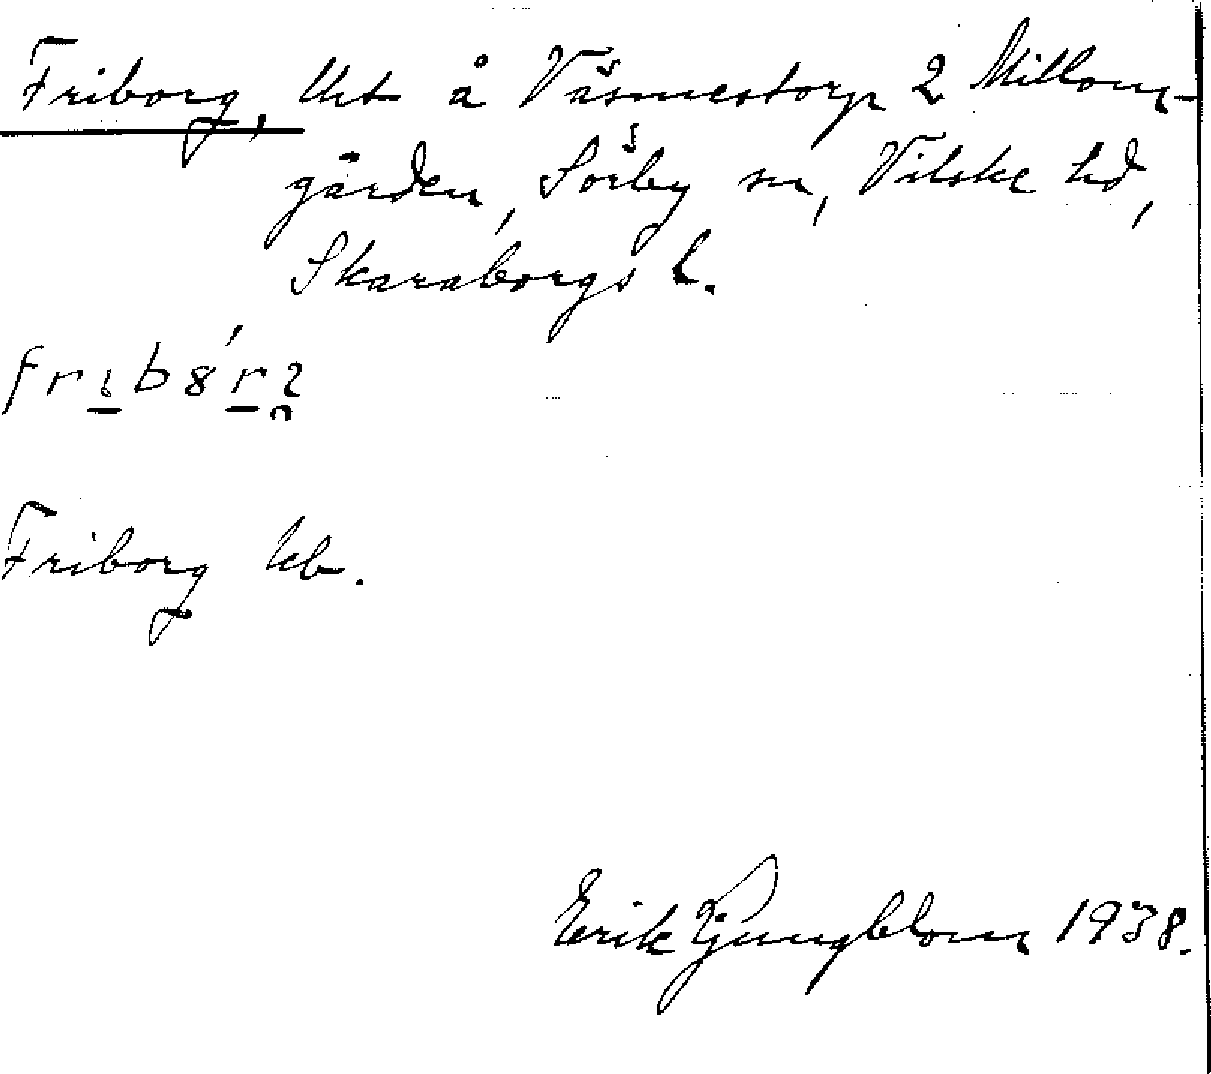 Friborg, Urt å Väsmestorp 2 Mellom-
gården, Sörby sn, Vilske hd,
Skaraborgs l.
Friborg kb.
Erik Ljungblom 1938.